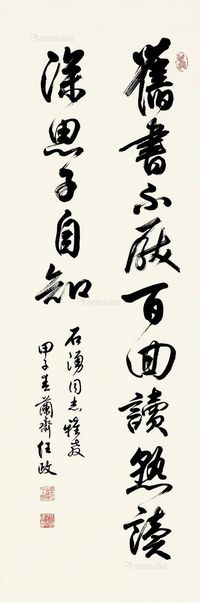 舊書不厭百回讀熟讀
深思子自知
石湧同志雅教
甲子春蘭齋任政